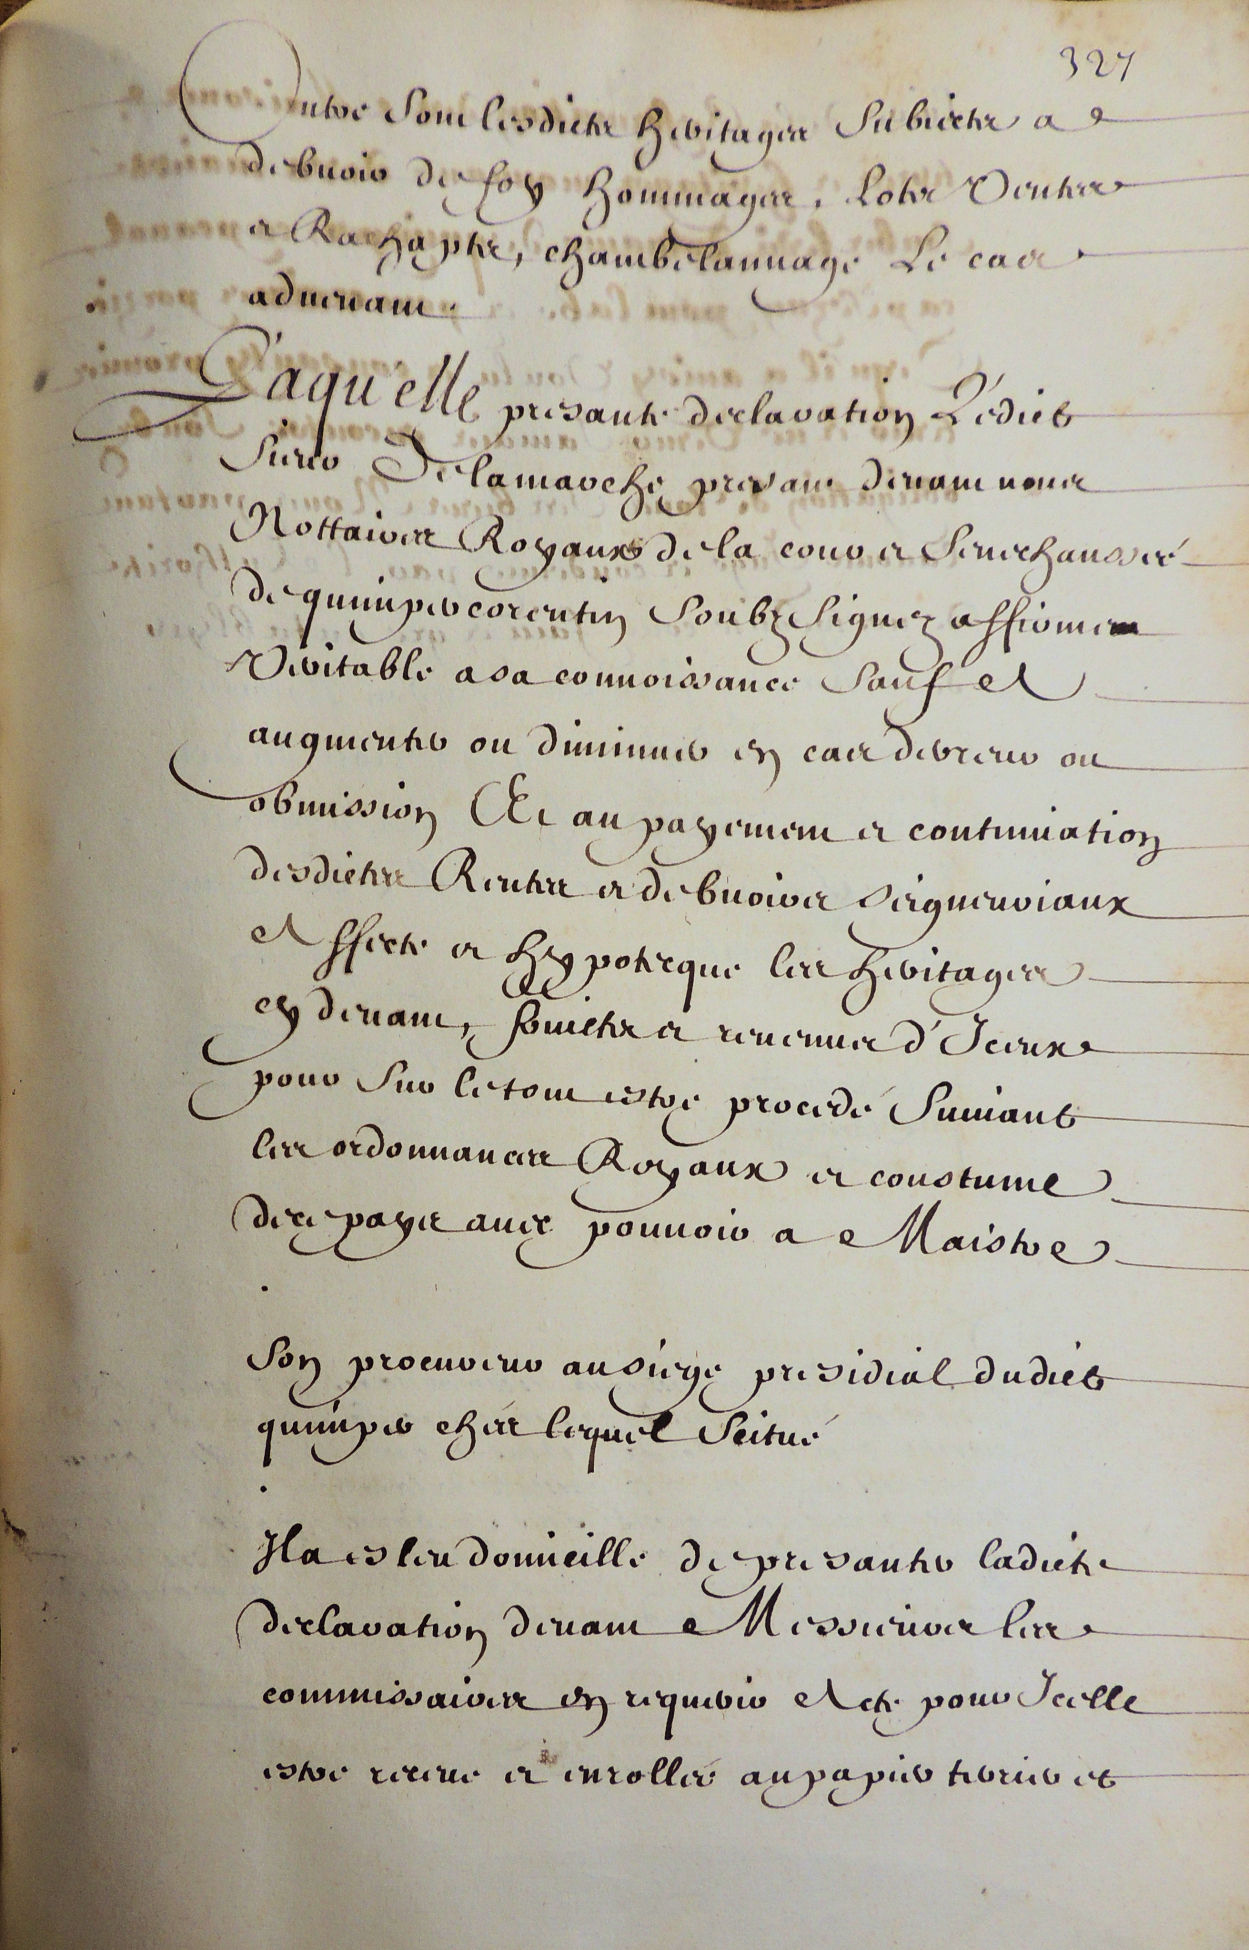 327
Outre sont lesdictes heritages subiectes a
debuoir de foy hommages, lots ventes
et Rachaptes, chambelannage Le cas
aduenant.
Laquelle presante declaration Ledict
Sieur Delamarche presant deuant nous
Nottaires Royaux de la cour et Seneschaussee
de quimpercorentin Soubz Signez affirme
Veritable a sa connoissance Sauf A
augmenter ou diminuer en cas d'erreur ou
obmission Et au payement et continuation
desdictes Rentes et debuoirs seigneuriaux
Affecte et hypotecque les heritages
cy deuant, fruictes et reuenues d'Iceux
pour Sur le tout estre procedé Suiuant
les ordonnances Royaux et coustume
de ce pays auec pouuoir a Maistre
Son procureur au siege presidial dudict
quimper chés lequel Scitué
Il a esleu domicille de presanter ladicte
declaration deuant Messieurs les
commissaires en requerir Acte pour Icelle
estre receue et enrollée au papier terrier et